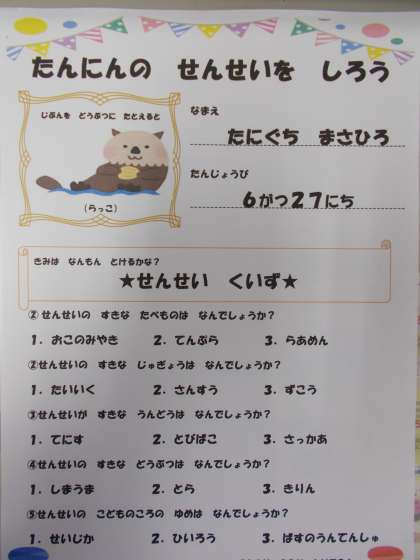 たんにんの せんせいを しろう
じぶんを どうぶつに たとえると
(らっこ)
なまえ
たにぐち まさひろ
たんじょうび
6がつ27にち
きみは なんもん とけるかな?
★せんせい くいず★
②せんせいの すきな たべものは なんでしょうか?
1. おこのみやき 2. てんぷら 3. らあめん
②せんせいの すきな じゅぎょうは なんでしょうか?
1. たいいく 2. さんすう 3. ずこう
③せんせいが すきな うんどうは なんでしょうか?
1. てにす 2. とびばこ 3. さっかあ
④せんせいの すきな どうぶつは なんでしょうか?
1. しまうま 2. とら 3. きりん
⑤せんせいの こどものころの ゆめは なんでしょうか?
1. せいじか 2. ひいろう 3. ばすのうんてんしゅ